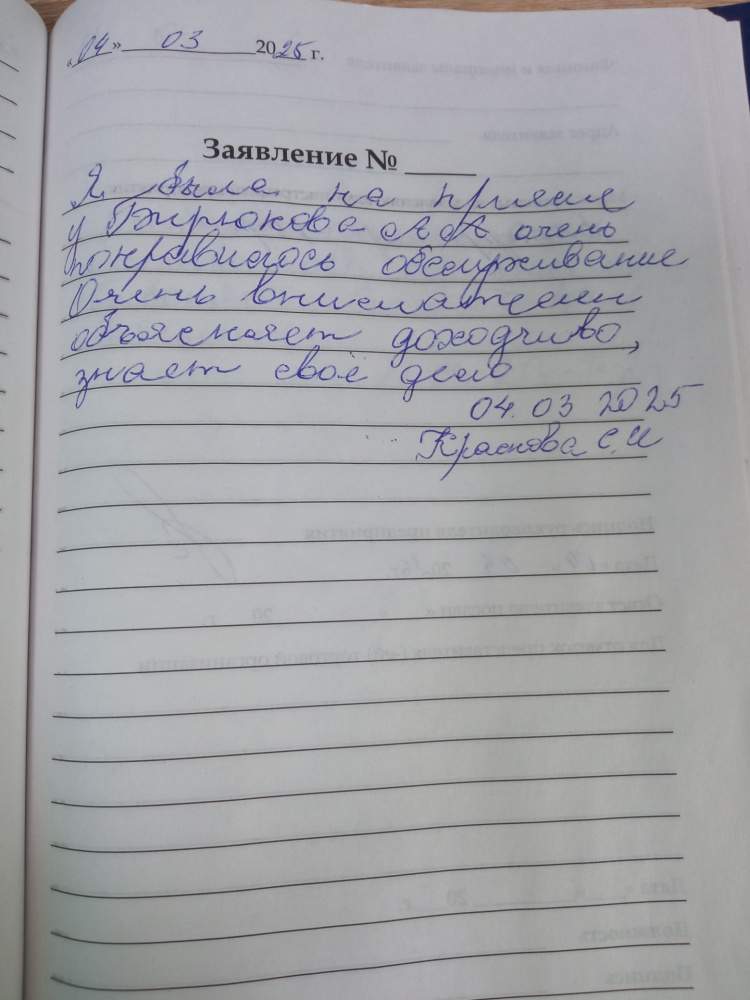 «04» 03 2025 г.
Заявление № ____
Я была на приеме
у Бирюкова А А очень
понравилось обслуживание
Очень внимателен
объясняет доходчиво,
знает своё дело
04. 03 2025
Краснова С. И